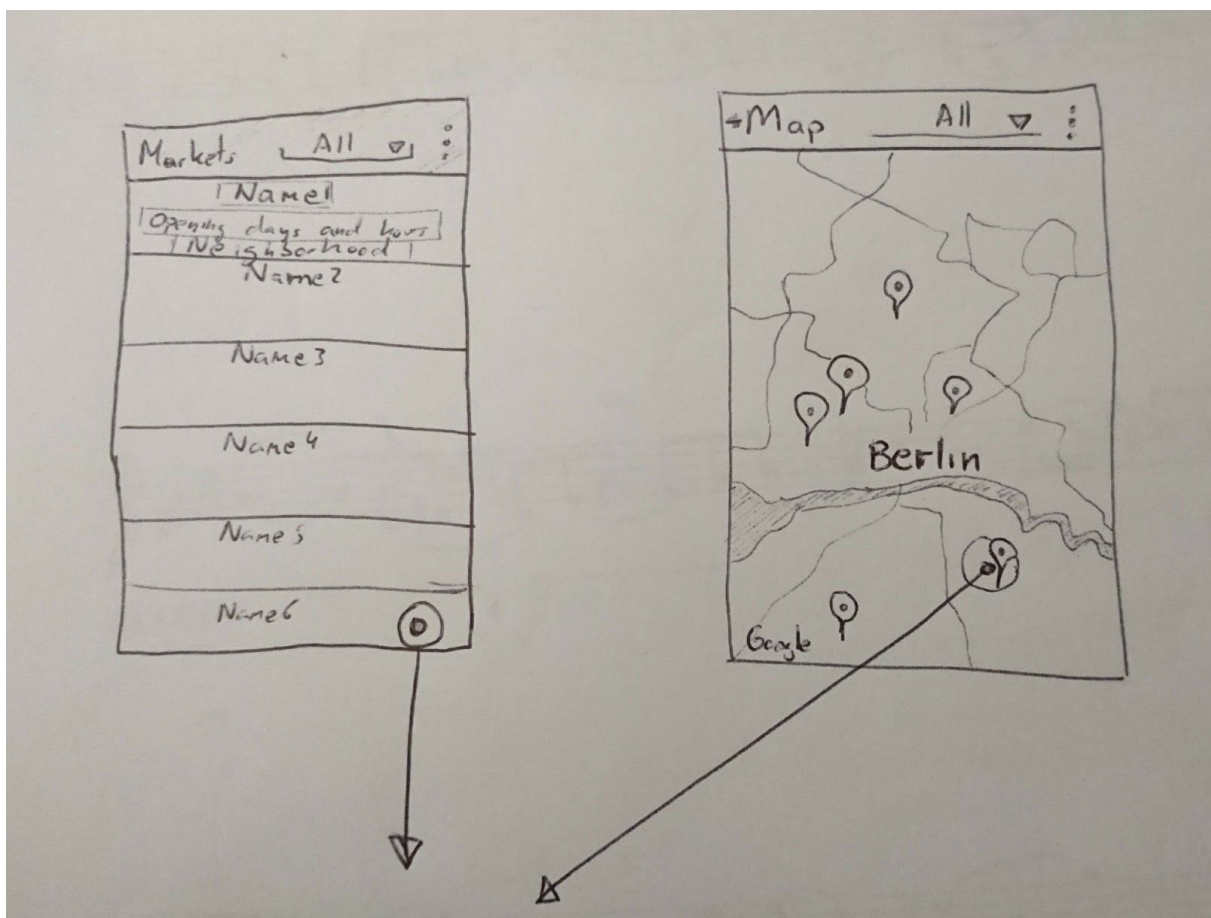 Markets All
Name1
Opening days and hours
Neighborhood
Name2
Name3
Name4
Name5
Name6
Map All
Berlin
Google